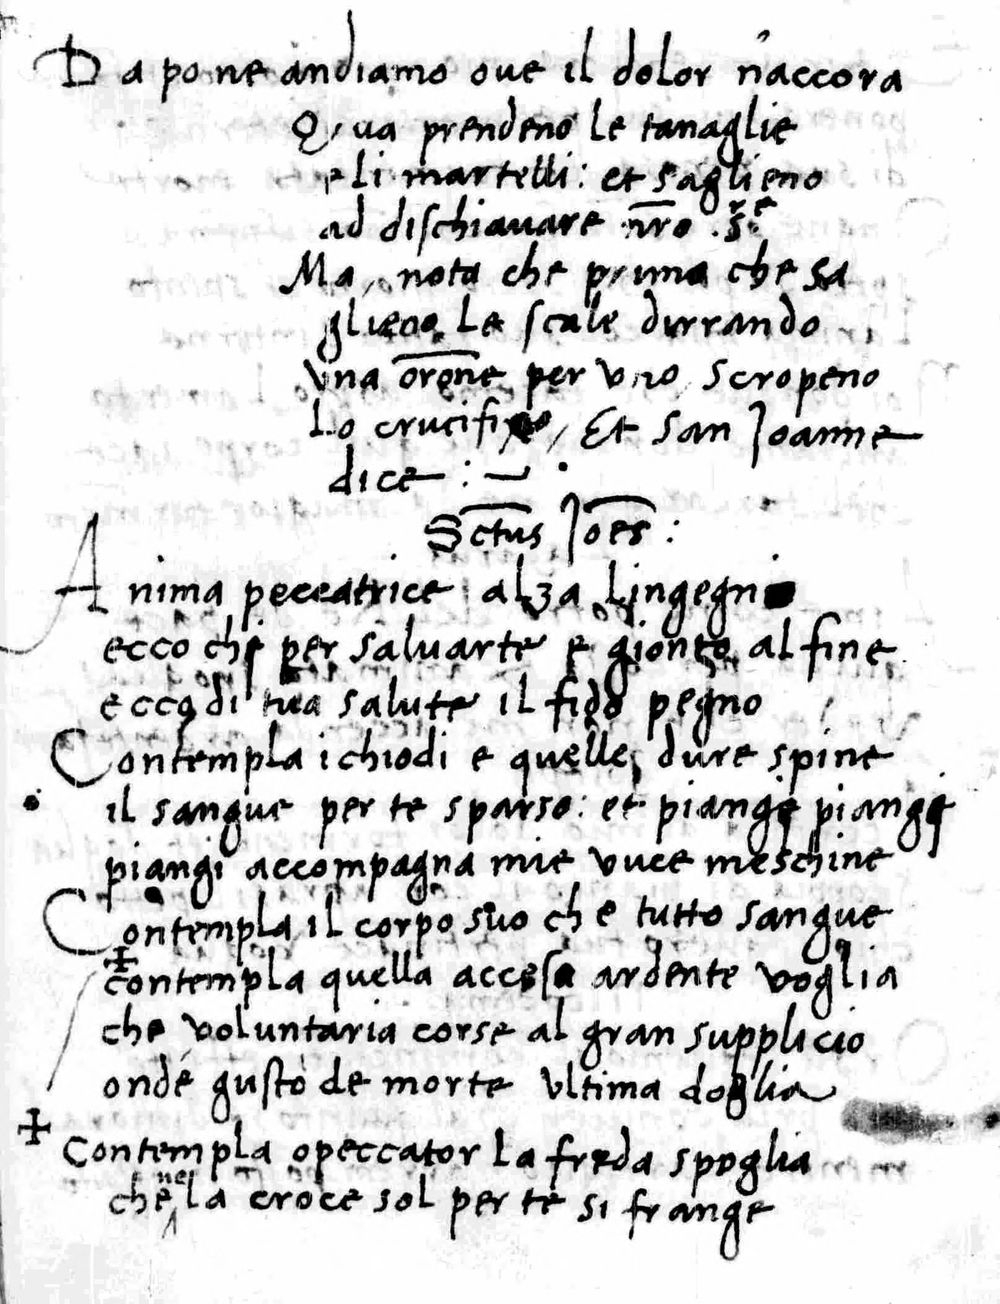 Da po ne andiamo oue il dolor n'accora
Qua prendeno le tanaglie
e li martelli: et saglieno
ad dischiauare nr̄o .S.re
Ma, nota che prima che sa
glieno le scale durrando
vna orōne per vno scropeno
Lo crucifixo, Et san Joanne
dice :
Sctūs Joēs :
Anima peccatrice alza lingegno
ecco che per saluarte e gionto al fine
ecco di tua salute il fido pegno
Contempla i chiodi e quelle dure spine
il sangue per te sparso: et piange piange
piangi accompagna mie vuce meschine
Contempla il corpo suo che tutto sangue
contempla quella accesa ardente voglia
che voluntaria corse al gran supplicio
onde gusto de morte vltima doglia
Contempla o peccator la freda spoglia
che nela croce sol per te si frange